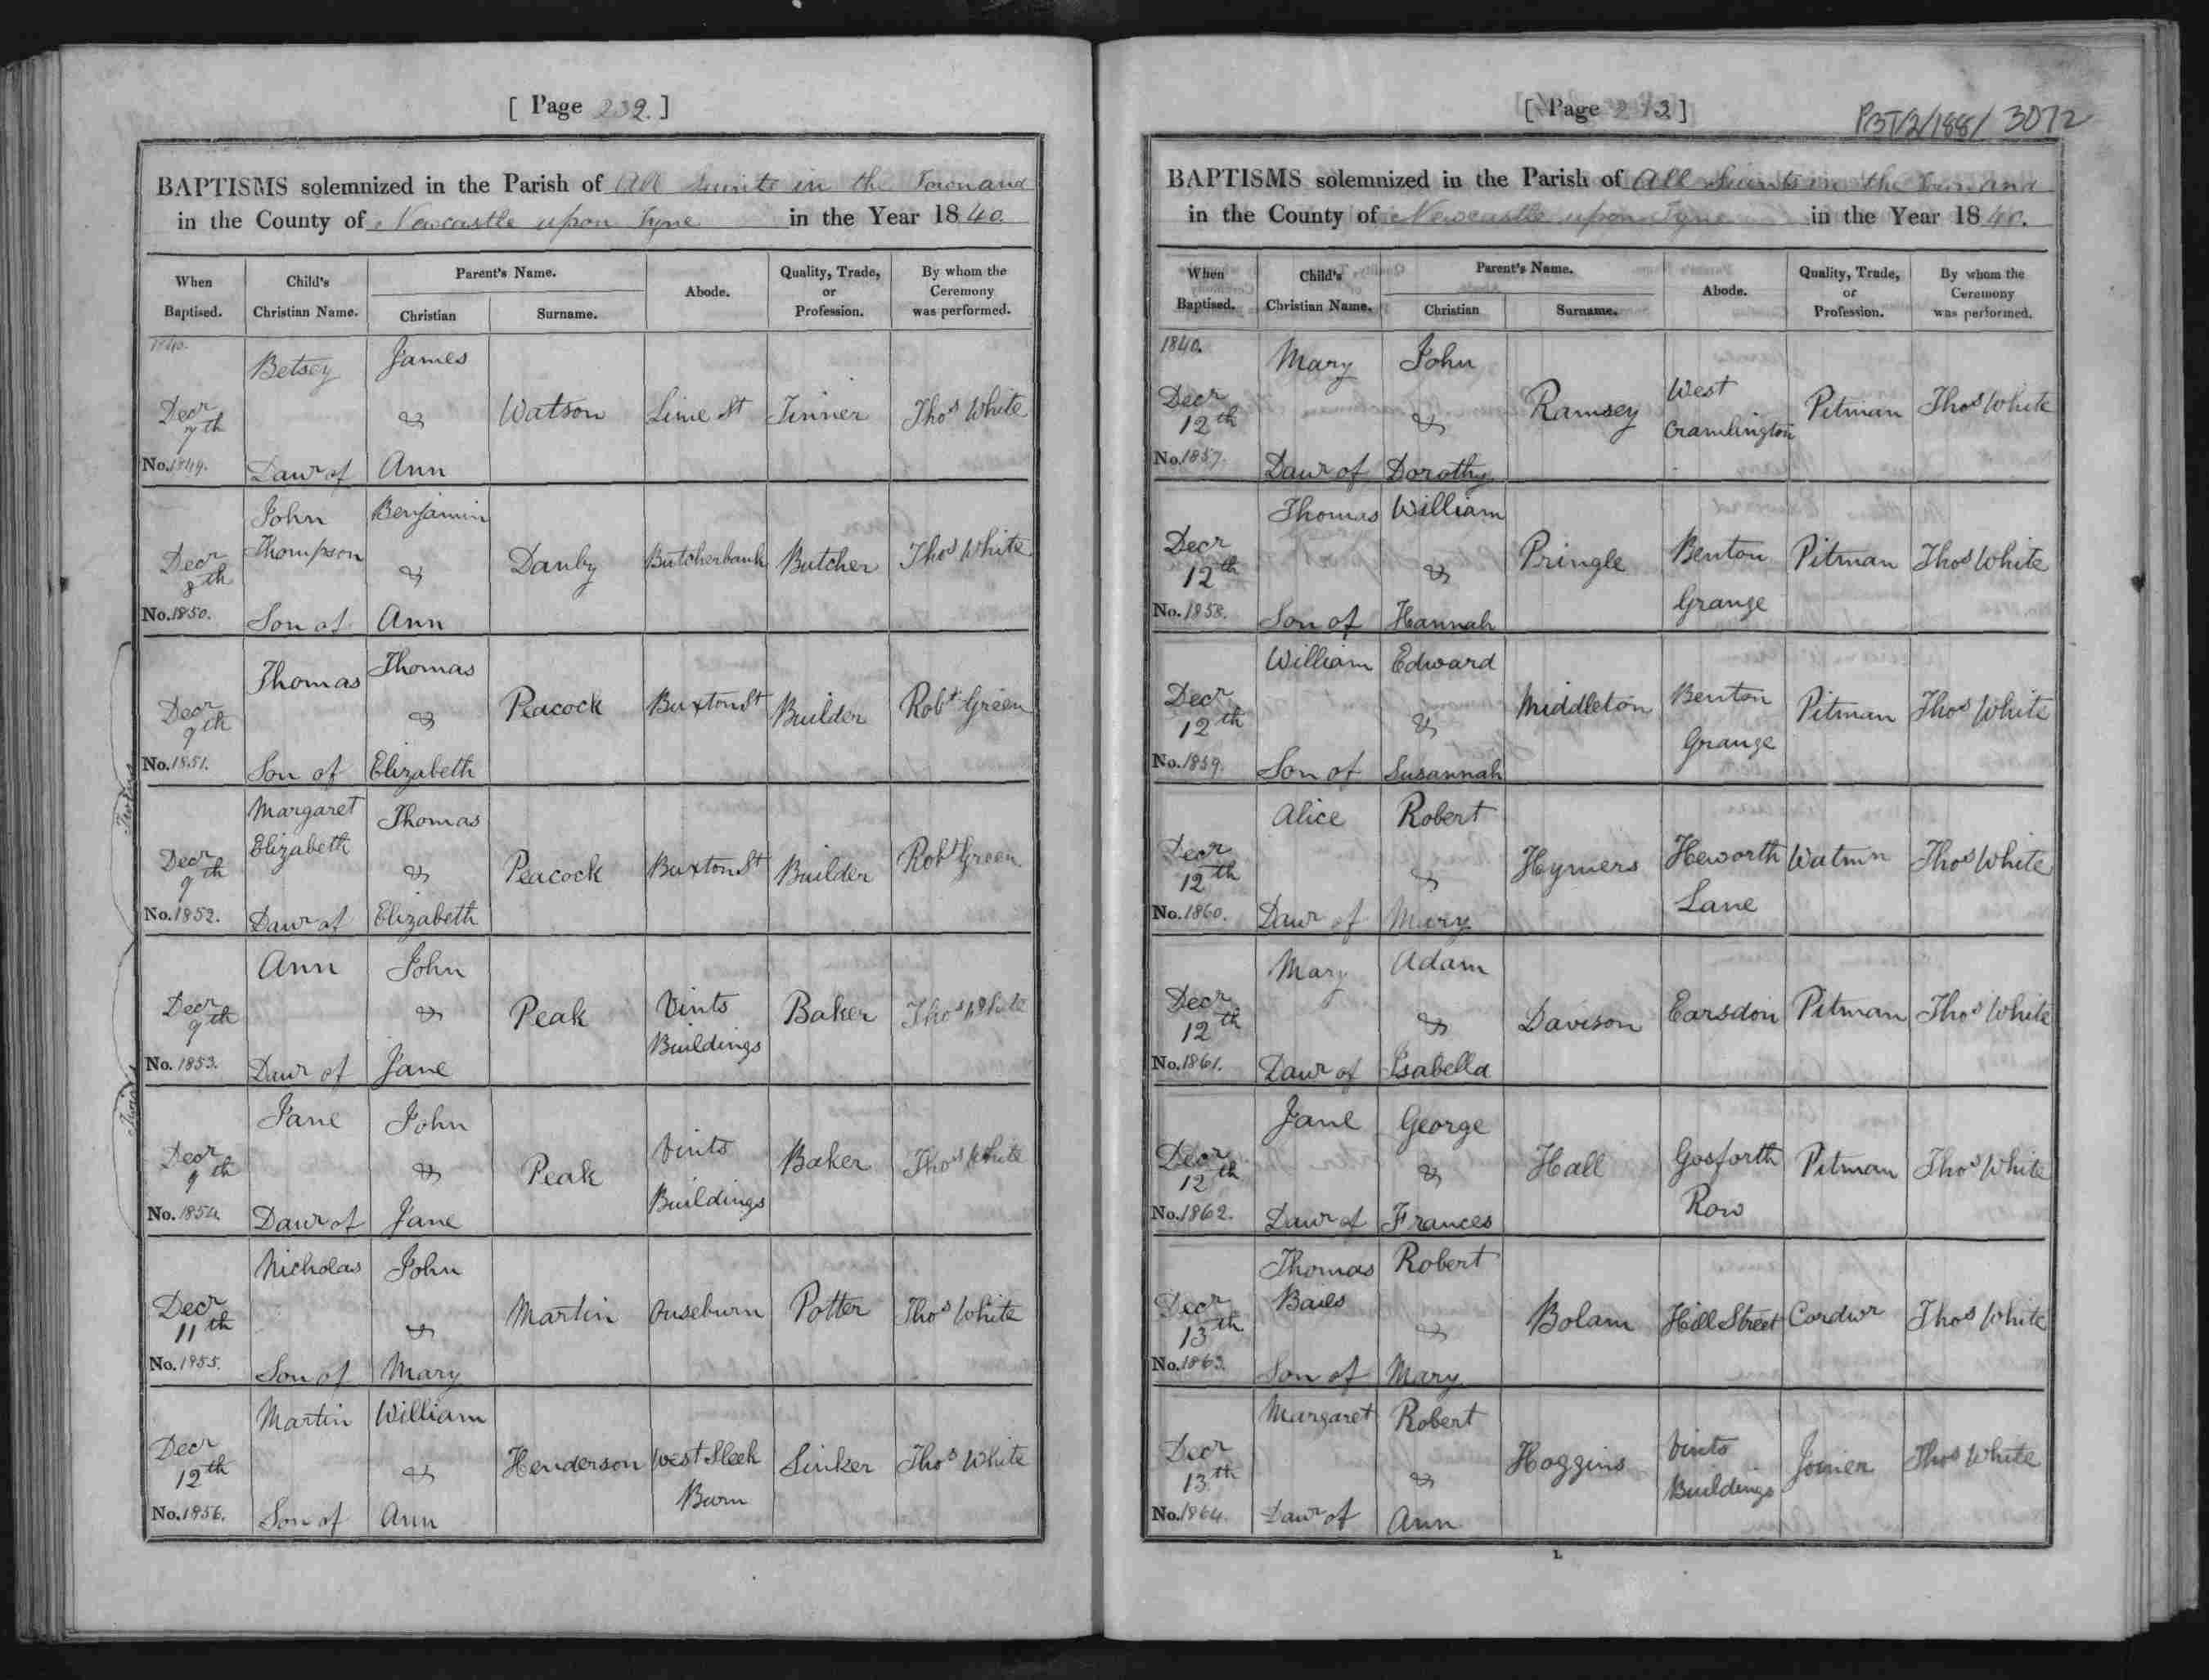 [ Page 232. ]
BAPTISMS solemnized in the Parish of All Saints in the Town and
in the County of Newcastle upon Tyne in the Year 1840.
When Baptised. Child's Christian Name. Parent's Name. Christian Surname. Abode. Quality, Trade, or Profession. By whom the Ceremony was performed.
1840.
Betsey James
Decr 7th & Watson Lime St Tinner Thos White
No. 1849. Daur of Ann
John Thompson Benjamin
Decr 8th & Danby Butcherbank Butcher Thos White
No. 1850. Son of Ann
Thomas Thomas
Decr 9th & Peacock Buxton St Builder Robt Green
No. 1851. Son of Elizabeth
Margaret Elizabeth Thomas
Decr 9th & Peacock Buxton St Builder Robt Green
No. 1852. Daur of Elizabeth
Ann John
Decr 9th & Peak Vints Buildings Baker Thos White
No. 1853. Daur of Jane
Jane John
Decr 9th & Peak Vints Buildings Baker Thos White
No. 1854. Daur of Jane
Nicholas John
Decr 11th & Martin Ouseburn Potter Thos White
No. 1855. Son of Mary
Martin William
Decr 12th & Henderson West Sleek Burn Sinker Thos White
No. 1856. Son of Ann
[ Page 233 ]
PBT/2/188/3072
BAPTISMS solemnized in the Parish of All Saints in the Town and
in the County of Newcastle upon Tyne in the Year 1840.
When Baptised. Child's Christian Name. Parent's Name. Christian Surname. Abode. Quality, Trade, or Profession. By whom the Ceremony was performed.
1840.
Mary John
Decr 12th & Ramsey West Cramlington Pitman Thos White
No. 1857. Daur of Dorothy
Thomas William
Decr 12th & Pringle Benton Grange Pitman Thos White
No. 1858. Son of Hannah
William Edward
Decr 12th & Middleton Benton Grange Pitman Thos White
No. 1859. Son of Susannah
Alice Robert
Decr 12th & Hymers Heworth Lane Watmn Thos White
No. 1860. Daur of Mary
Mary Adam
Decr 12th & Davison Earsdon Pitman Thos White
No. 1861. Daur of Isabella
Jane George
Decr 12th & Hall Gosforth Row Pitman Thos White
No. 1862. Daur of Frances
Thomas Bails Robert
Decr 13th & Bolam Hill Street Cordwr Thos White
No. 1863. Son of Mary
Margaret Robert
Decr 13th & Hoggins Vints Buildings Joiner Thos White
No. 1864. Daur of Ann